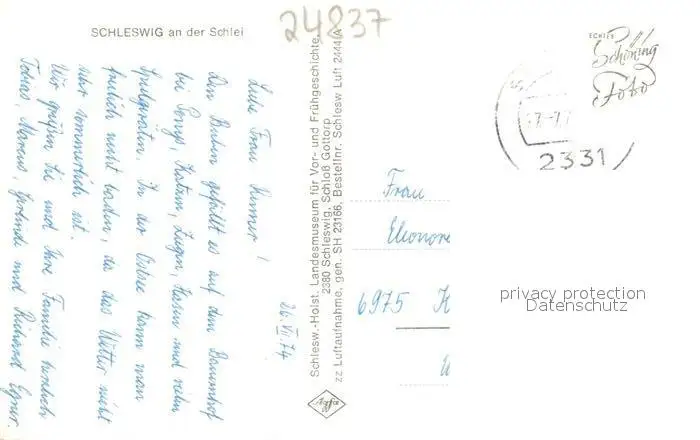 SCHLESWIG an der Schlei
24837
26.VII.74
Liebe Frau
Den Buben gefällt es auf dem Bauernhof
bei Ponys, Katzen, Ziegen, Hasen und vielen
Spielgeräten. In der Ostsee kann man
freilich nicht baden, da das Wetter nicht
sehr sommerlich ist.
Wir grüßen Sie und Ihre Familie herzlich
Tobias, Marcus, Gerlinde und Richard
Schlesw.-Holst. Landesmuseum für Vor- und Frühgeschichte,
2380 Schleswig, Schloß Gottorp
zz Luftaufnahme, gen. SH 23166, Bestellnr. Schlesw Luft 2444 A
Agfa
ECHTES
Schöning
Foto
2331
Frau
Eleonore
6975 K
privacy protection
Datenschutz